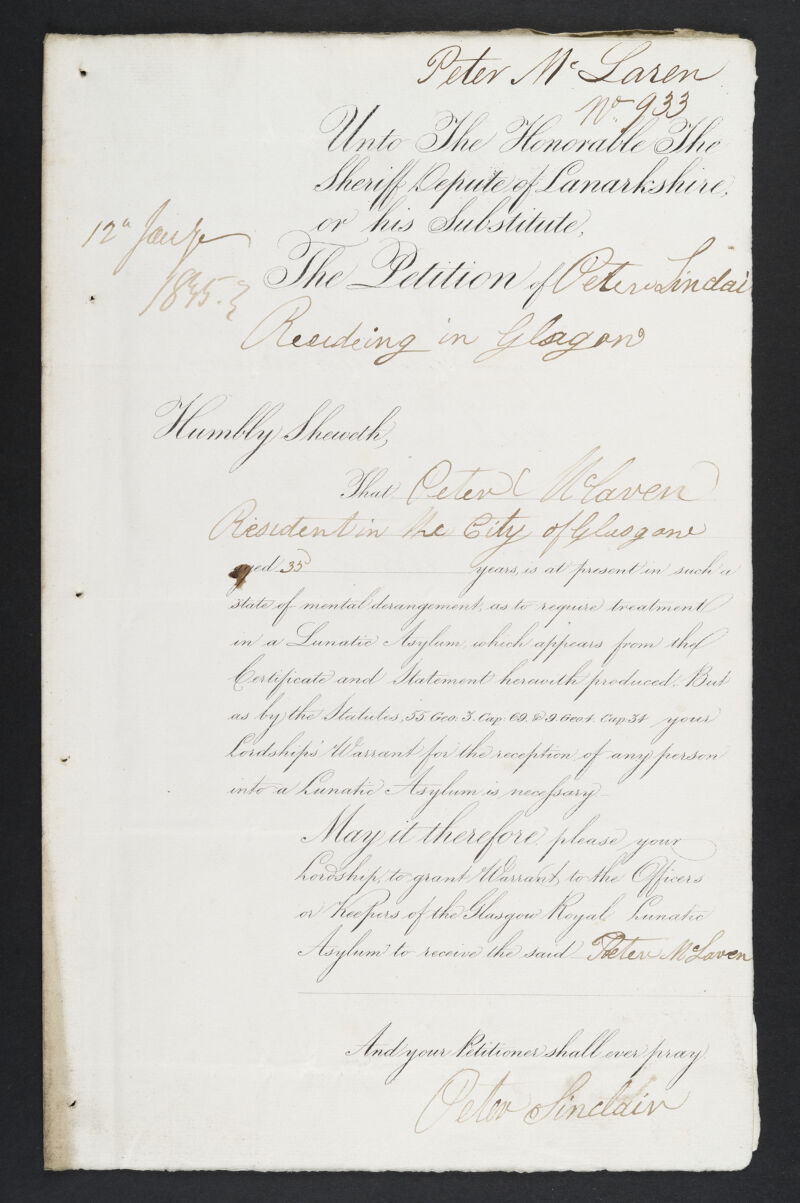 Peter Mc Laren
No 933
Unto The Honorable The
Sheriff Depute of Lanarkshire,
or his Substitute,
12
1835.
The Petition of Peter Sinclai
Resideing in Glagow
Humbly Sheweth,
That Peter McLaren
Resident in the City of Glasgow
aged 35 years, is at present in such a
state of mental derangement, as to require treatment
in a Lunatic Asylum, which appears from the
Certificate and Statement herewith produced. But
as by the Statutes, 55 Geo: 3. Cap: 69. & 9. Geo 4. Cap: 34 your
Lordship's Warrant for the reception of any person
into a Lunatic Asylum is necessary
May it therefore please your
Lordship, to grant Warrant, to the Officers
or Keepers of the Glasgow Royal Lunatic
Asylum to receive the said Peter McLaren
And your Petitioner shall ever pray
Peter Sinclair